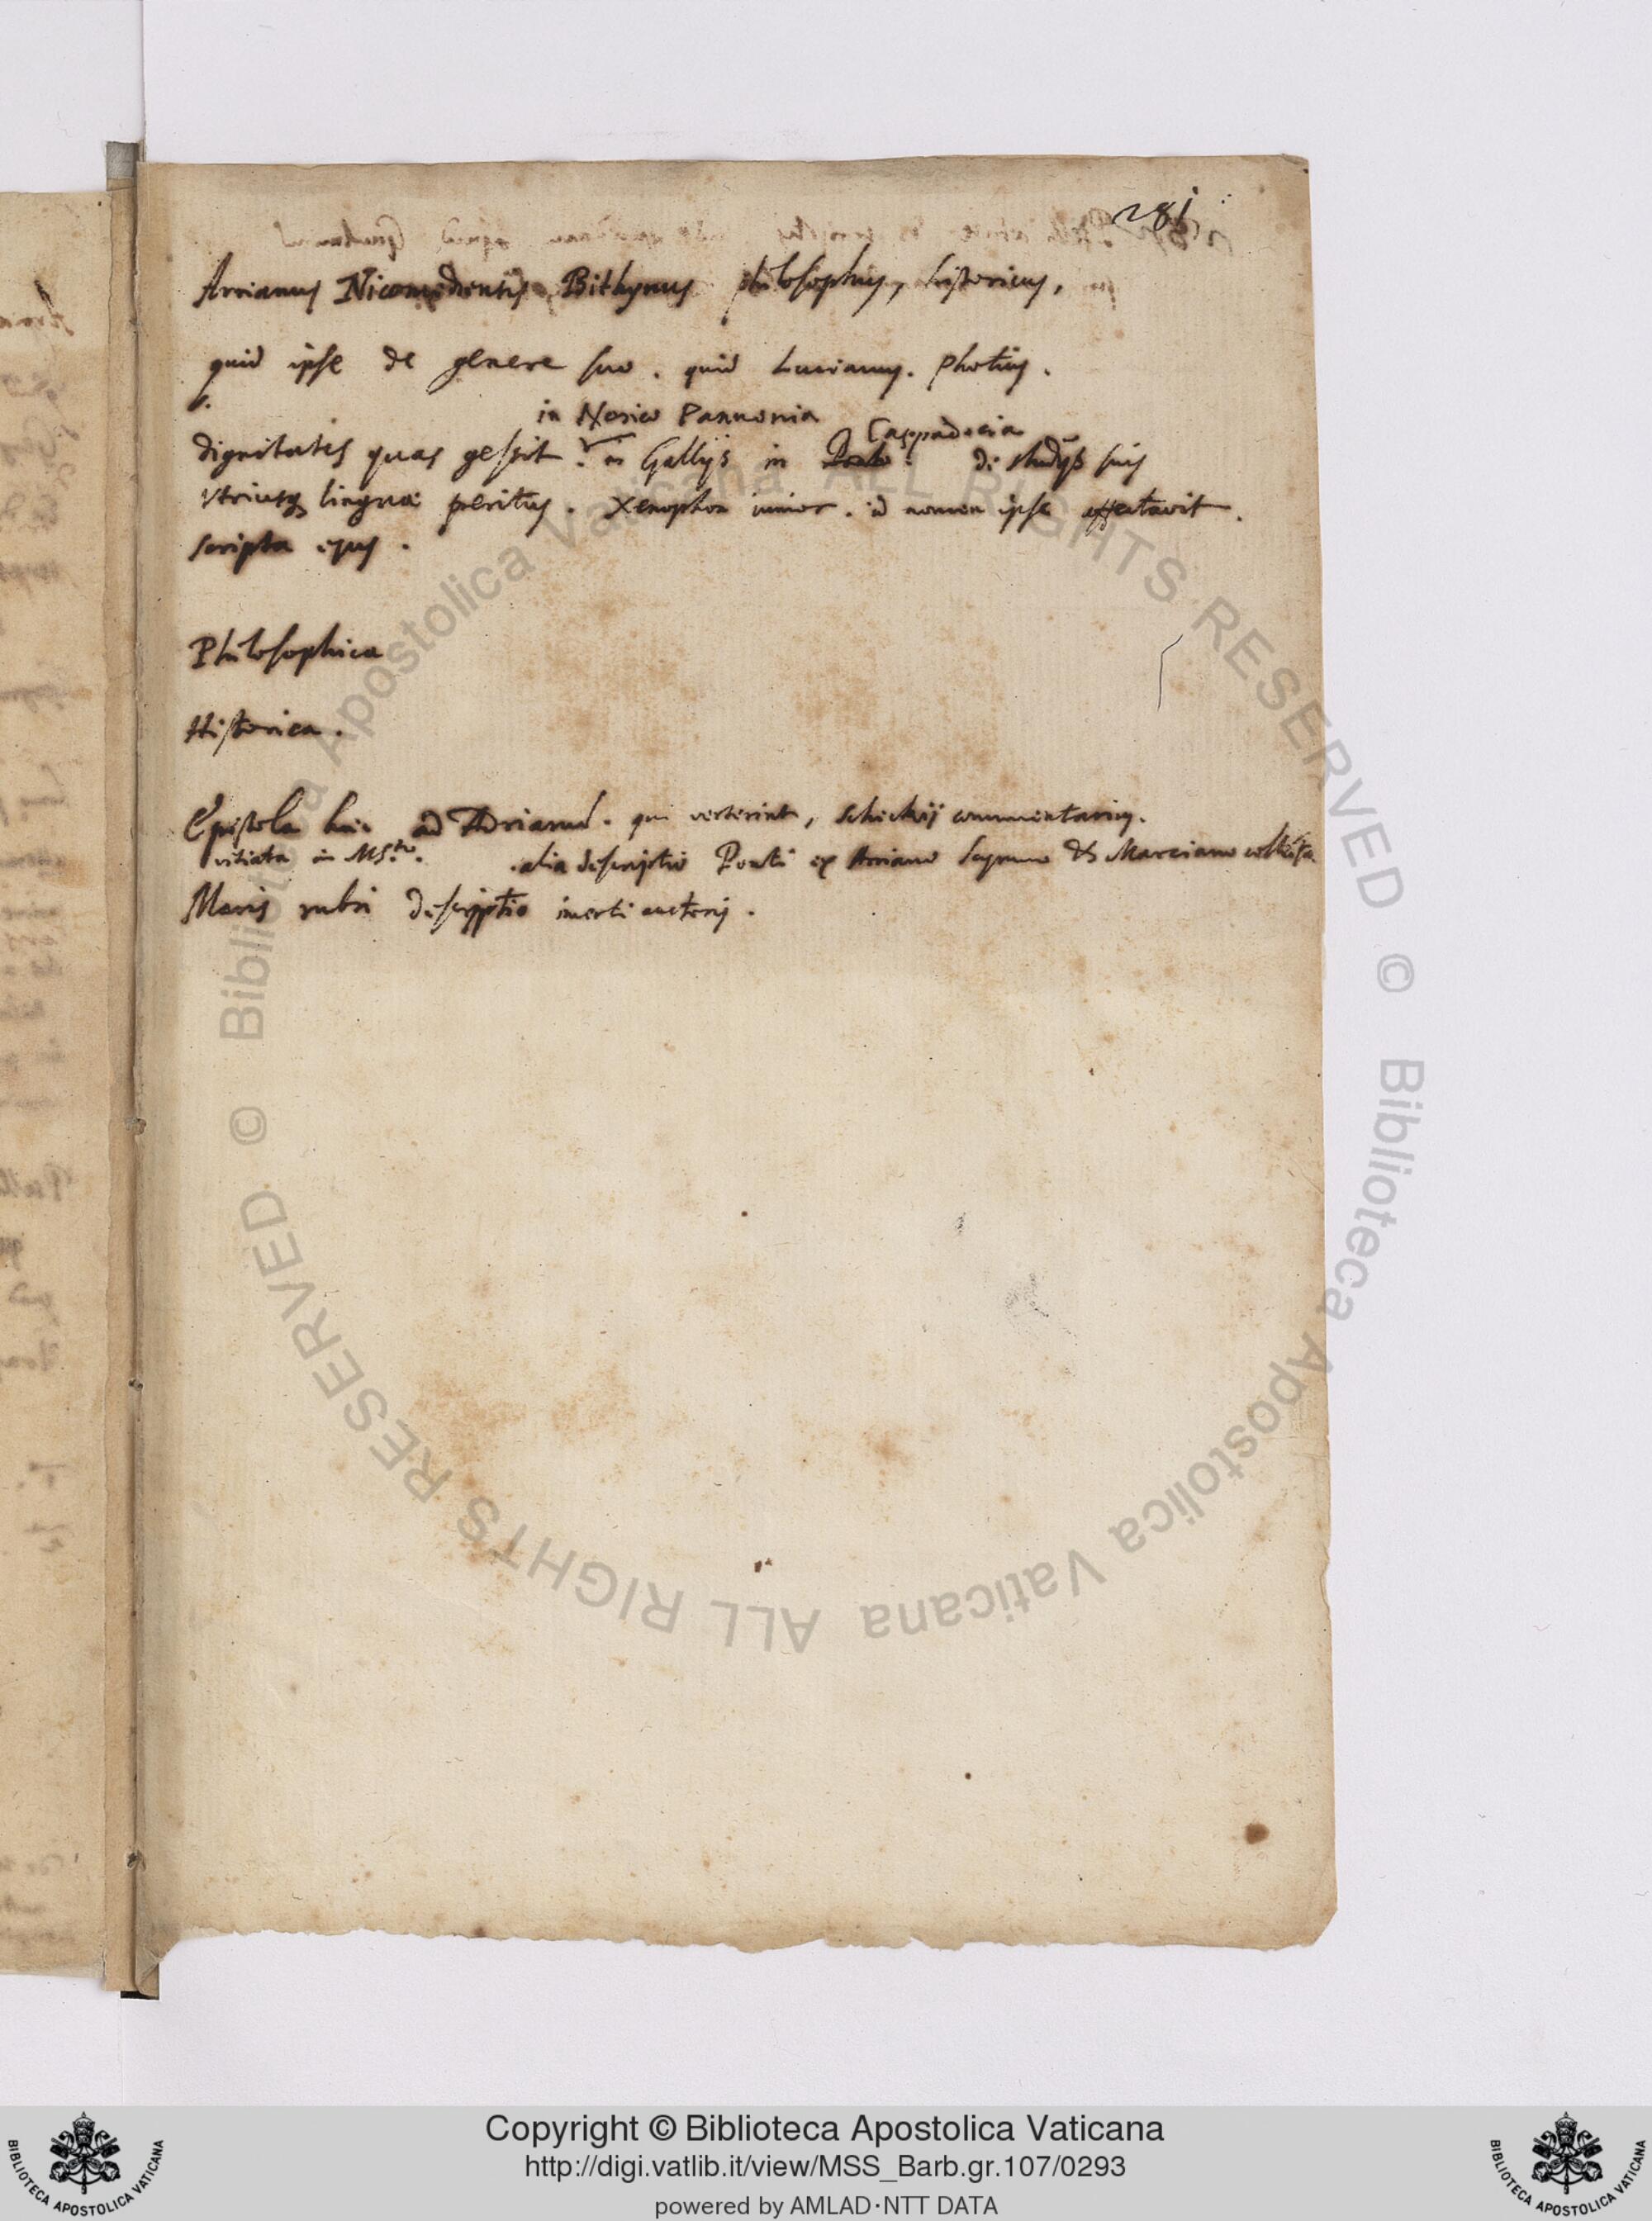 281
Arrianus Nicomediensis, Bithynus philosophus, historicus,
quid ipse de genere suo. quid Lucianus. Photius.
in Norico Pannonia
Cappadocia
dignitates quas gessit. in Gallijs in Ponto. de studijs suis
vtriusq linguæ peritus. Xenophon iunior. id nomen ipse affectavit.
scripta ejus.
Philosophica
Historica.
Epistola hæc ad Adrianum. qui verterint, Schickij commentarius.
vitiata in MS.to. alia descriptio Ponti ex Arriano Scymno & Marciano collecta
Maris rubri descriptio incerti auctoris.
© Biblioteca Apostolica Vaticana ALL RIGHTS RESERVED © Biblioteca Apostolica Vaticana ALL RIGHTS RESERVED
Copyright © Biblioteca Apostolica Vaticana
http://digi.vatlib.it/view/MSS_Barb.gr.107/0293
powered by AMLAD·NTT DATA
BIBLIOTECA APOSTOLICA VATICANA
BIBLIOTECA APOSTOLICA VATICANA